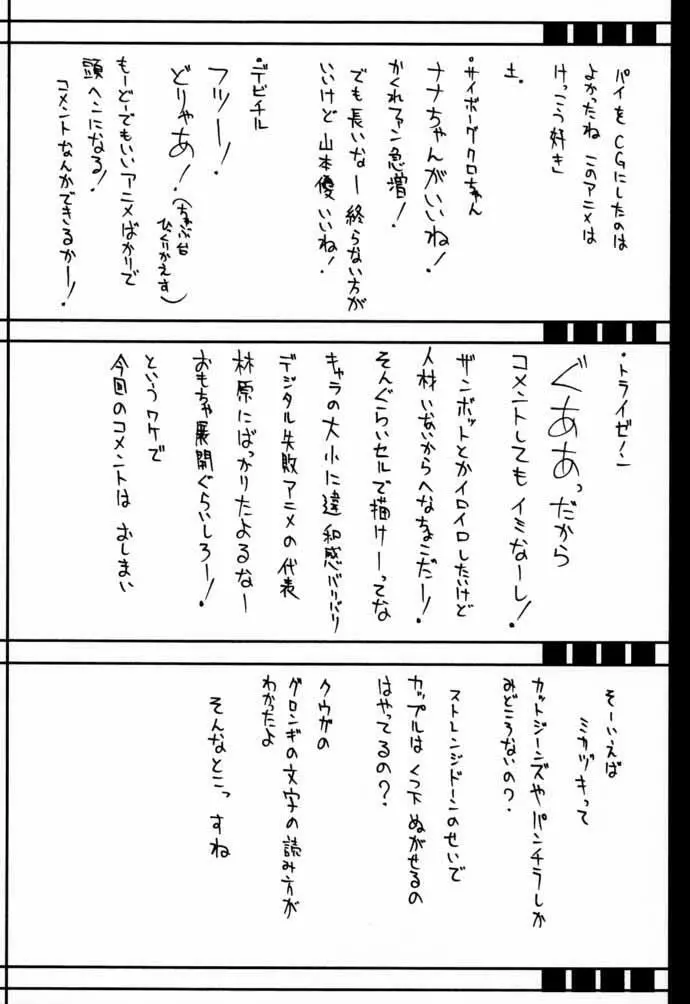 パイを CGにしたのは
よかったね このアニメは
けっこう好き」
土.
・サイボーグクロちゃん
ナナちゃんがいいね!
かくれファン急増!
でも長いなー 終らない方が
いいけど 山本優 いいね!
・デビチル
フツー!
どりゃあ! (ちゃぶ台
ひくりかえす)
もーどーでもいいアニメばかりで
頭ヘンになる!
コメントなんかできるかー!
・トライゼノン
ぐああっだから
コメントしてもイミなーし!
ザンボットとかイロイロしたいけど
人材いないからへなちょこだー!
そんぐらいセルで描けーってな
キャラの大小に違和感バリバリ
デジタル失敗アニメの代表
林原にばっかりたよるなー
おもちゃ展開ぐらいしろー!
というワケで
今回のコメントは おしまい
そーいえば
ミカヅキって
カットジーンズや パンチラしか
みどころないの?
ストレンジドーンのせいで
カップルは くつ下 ぬがせるの
はやってるの?
クウガの
グロンギの文字の読み方が
わかったよ
そんなとこっ すね